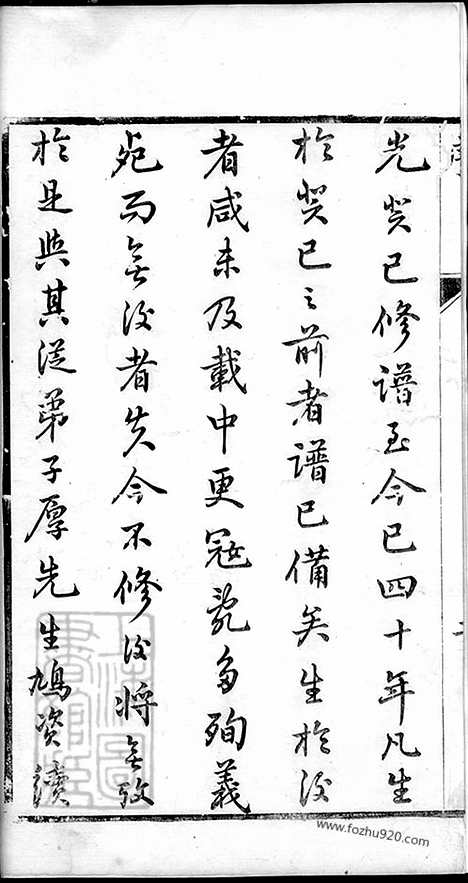 光癸巳修譜至今已四十年凡生
於癸巳之前者譜已備矣生於後
者咸未及載中更寇亂多殉義
死而無後者失今不修後將無攷
於是與其從弟子厚先生鳩资續
www.fozhu920.com